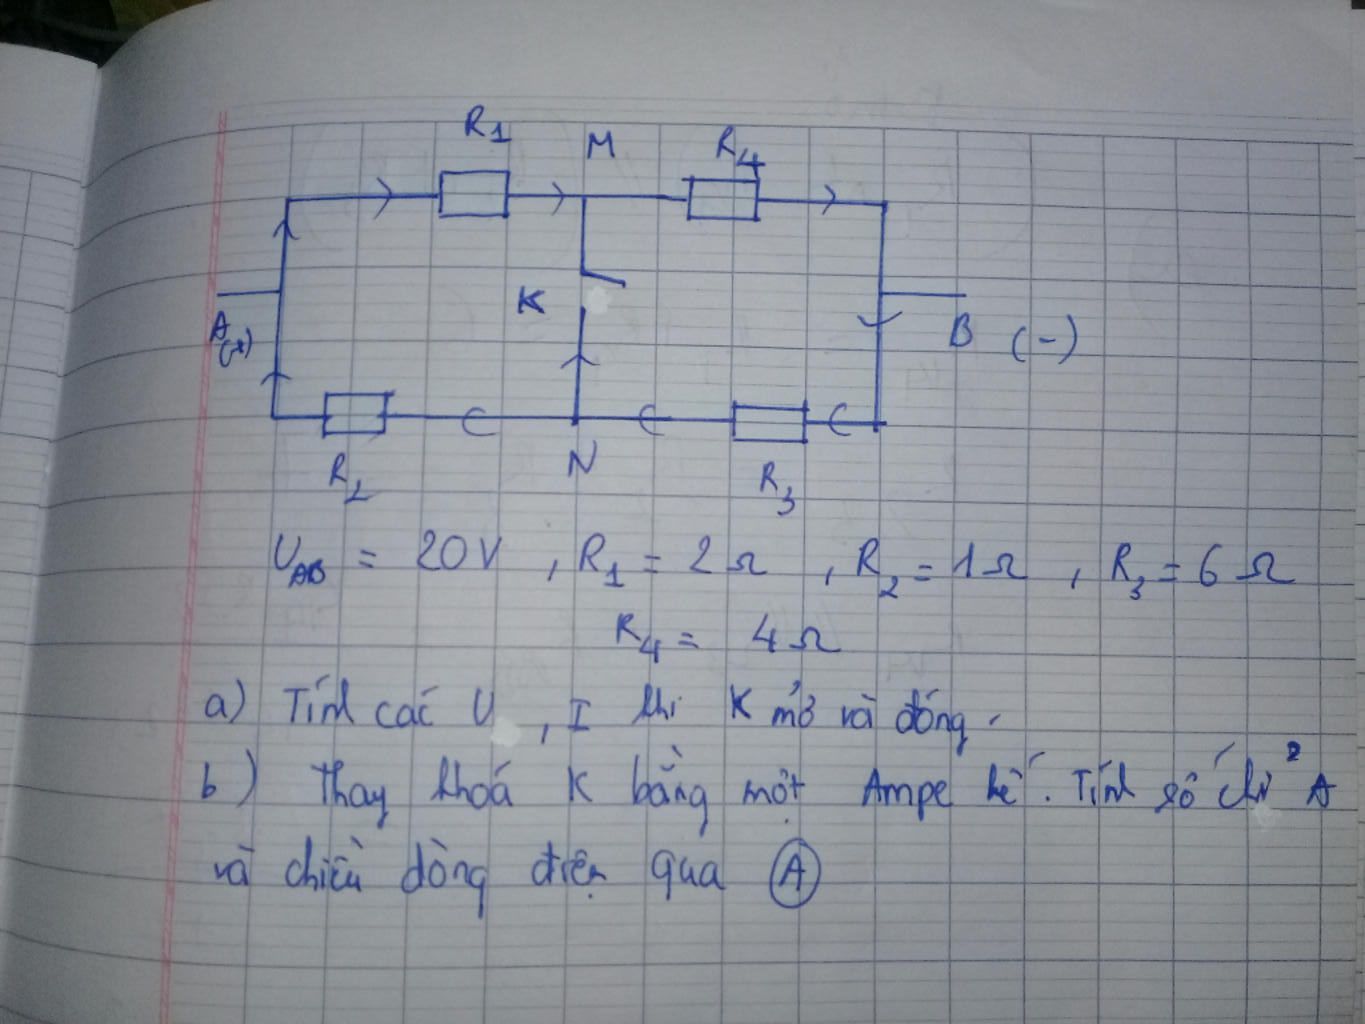 R1 M R4
K
A (+) B (-)
R2 N R3
UAB = 20V , R1 = 2Ω , R2 = 1Ω , R3 = 6Ω
R4 = 4Ω
a) Tính các U , I khi K mở và đóng.
b) Thay khoá K bằng một Ampe kế. Tính số chỉ A
và chiều dòng điện qua A